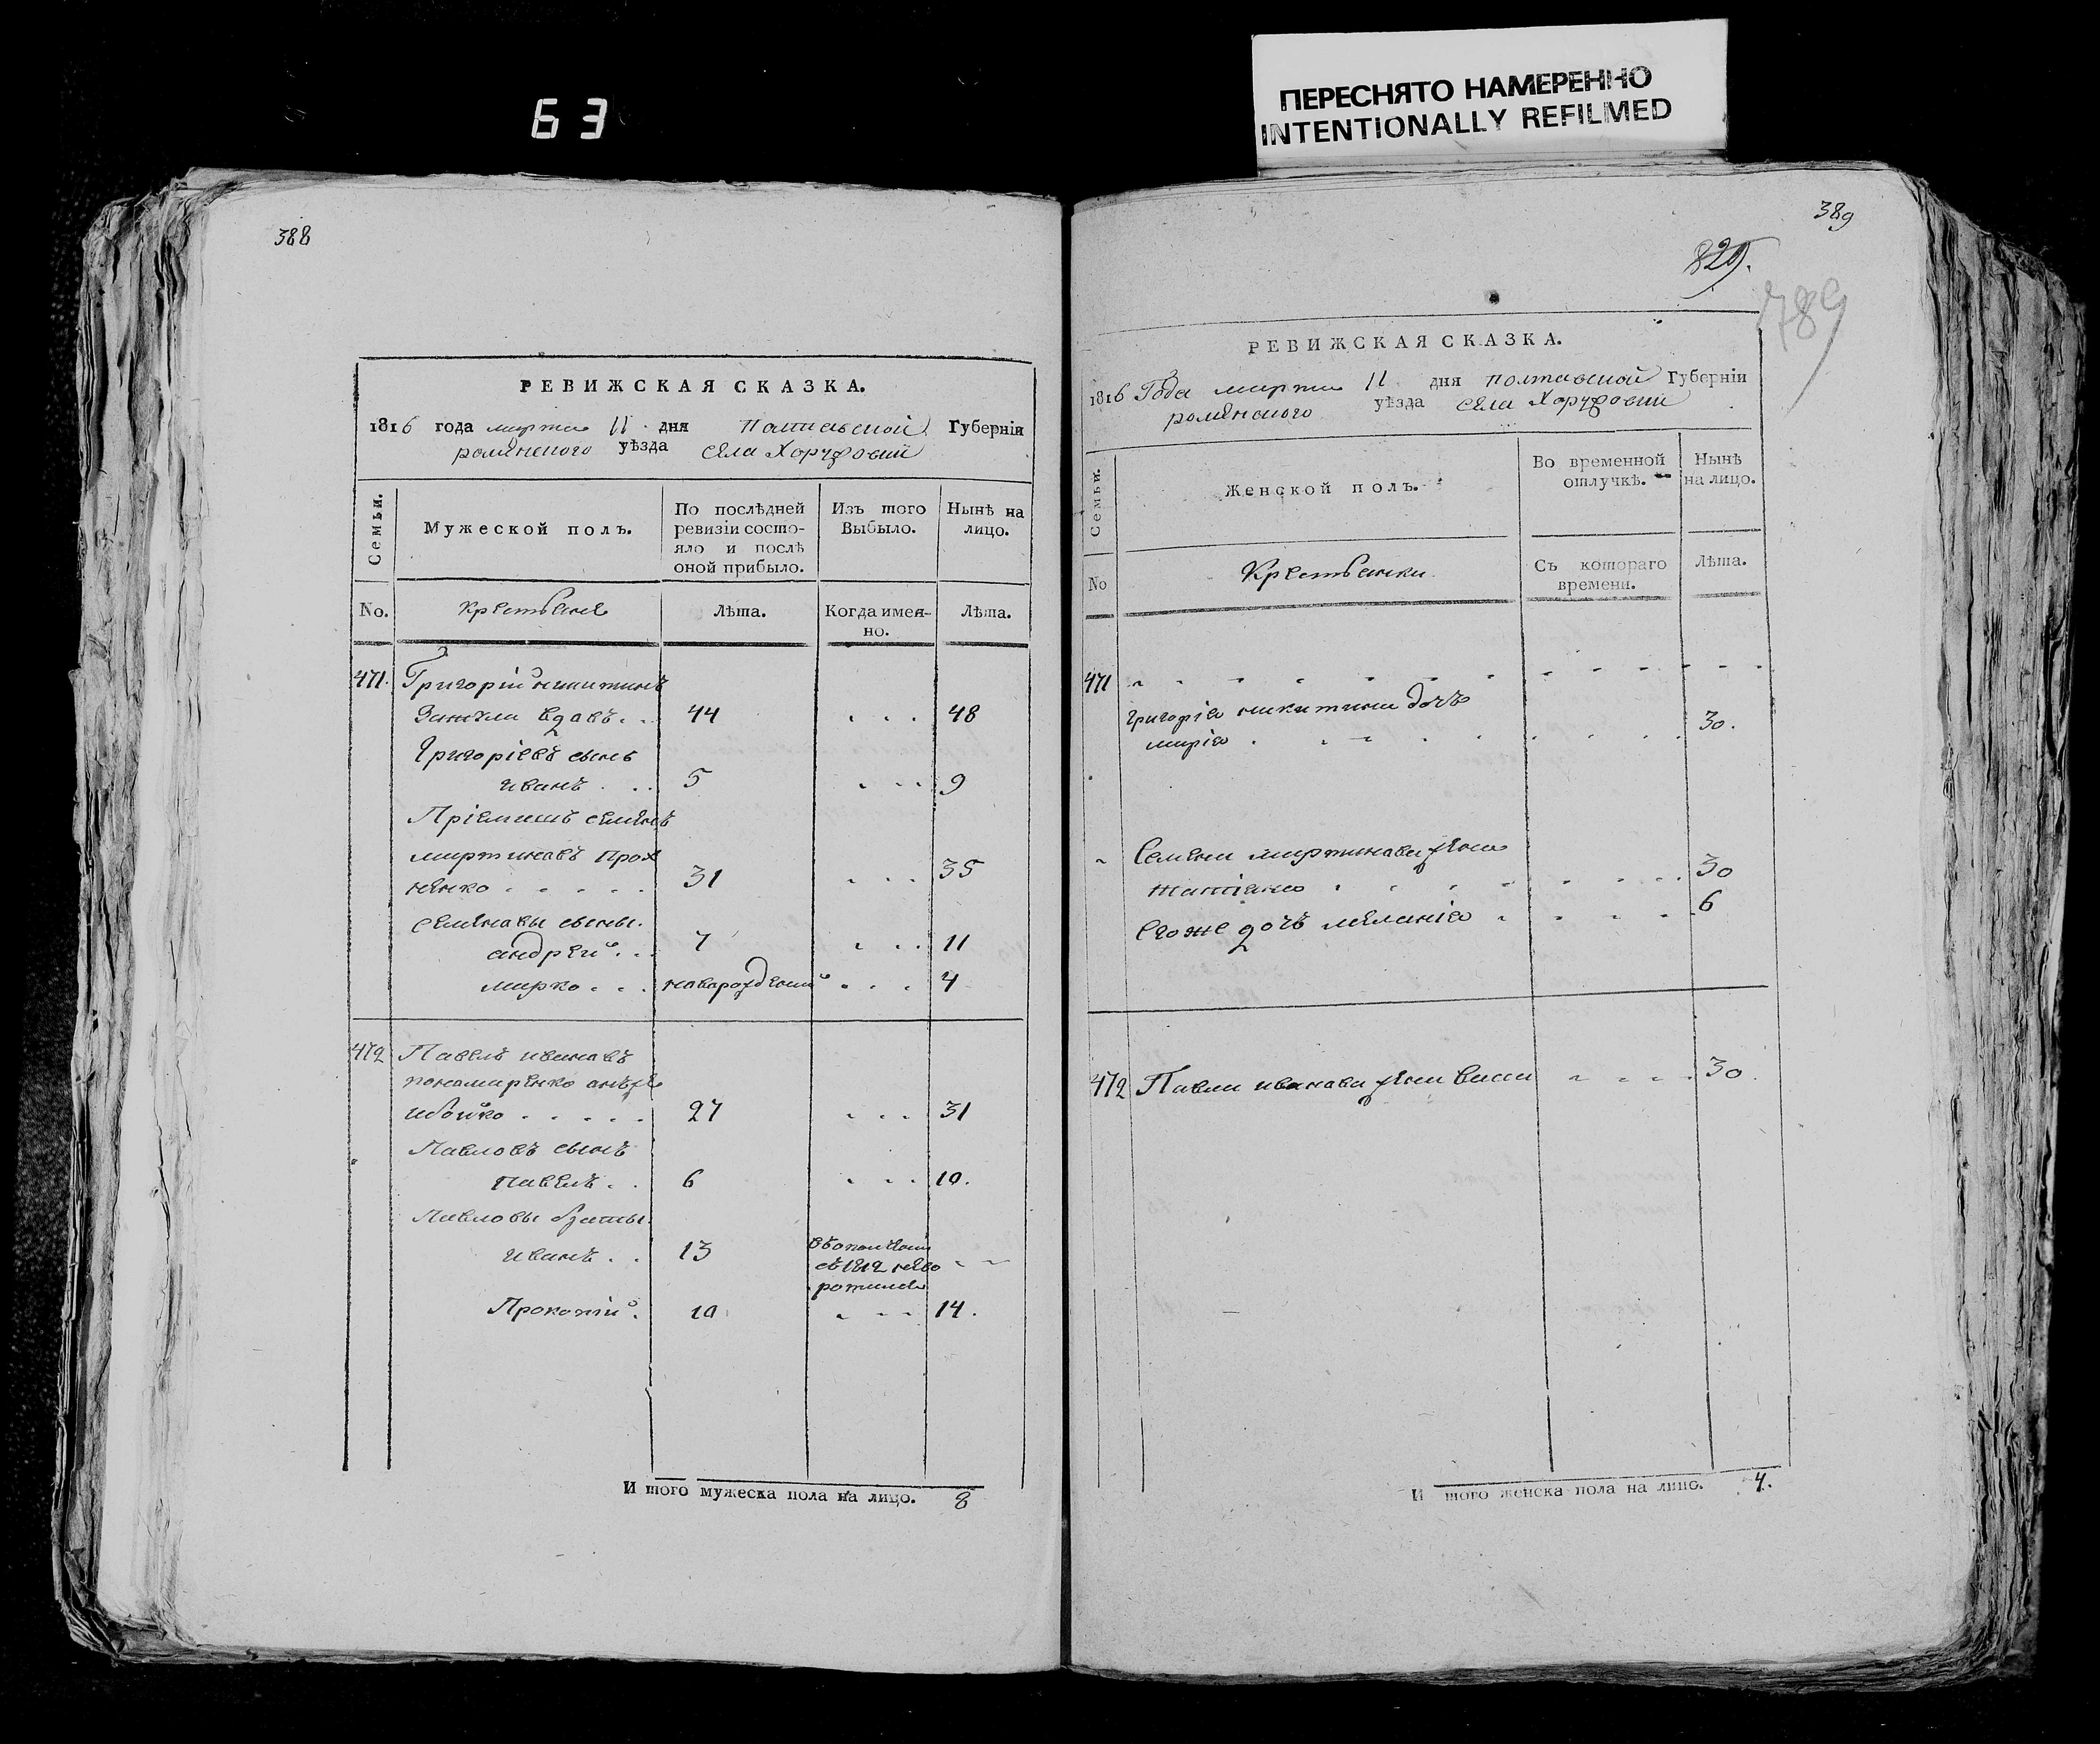 63
ПЕРЕСНЯТО НАМЕРЕННО
INTENTIONALLY REFILMED
388
РЕВИЖСКАЯ СКАЗКА.
1816 года марта 11 дня Полтавской Губерніи
роменского уѣзда села Хоружовки
Семьи.
Мужеской полъ.
По послѣдней ревизіи состояло и послѣ оной прибыло.
Изъ того Выбыло.
Нынѣ на лицо.
No.
Крестьяне
Лѣта.
Когда именно.
Лѣта.
471. Григорій никитинъ
вдовъ . . 44 . . . 48
Григоріевъ сынъ
иванъ . . . 5 . . . 9
Пріемышъ семенъ
мартиновъ
31 . . . 35
семеновы сыны.
андрей . . . 7 . . . 11
марко . . . новорожденый . . . 4
472 Павелъ ивановъ
понамаренко онъже
27 . . . 31
Павловъ сынъ
павелъ . . 6 . . . 10.
Павловы браты.
иванъ . . 13 въ ополченіи
съ 1812 нево
ротился
Прокопій . 10 . . . 14.
И того мужеска пола на лицо. 8
389
829.
789
РЕВИЖСКАЯ СКАЗКА.
1816 Года марта 11 дня полтавской Губерніи
роменского уѣзда села Хоружовки
Семьи.
Женской полъ.
Во временной отлучкѣ.
Нынѣ на лицо.
No
Крестьянки
Съ котораго времени.
Лѣта.
471
григорія никитина дочь
марія . . . 30.
Семена мартинова жена
татіана . . . 30
Егоже дочь меланія . . . 6
472 Павла иванова жена васса . . . 30.
И того женска пола на лицо. 4.